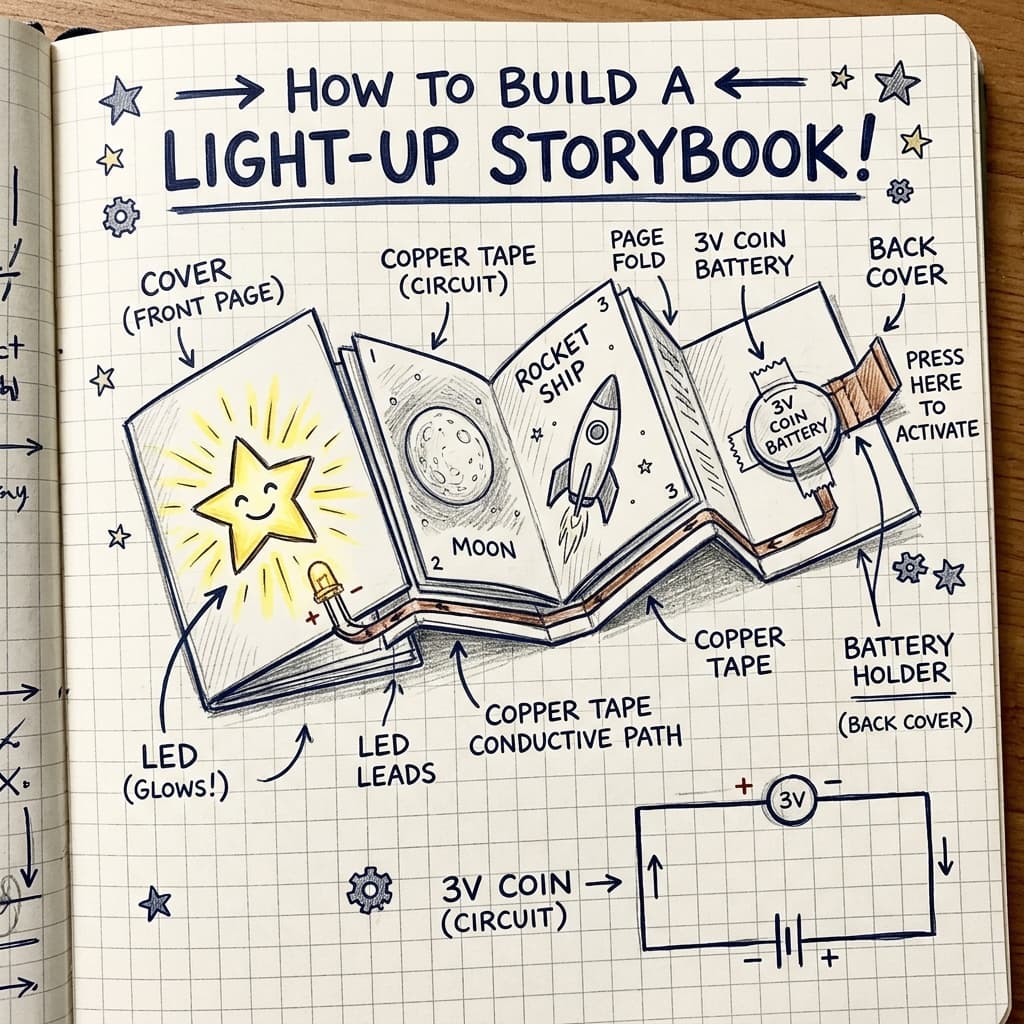 HOW TO BUILD A
LIGHT-UP STORYBOOK!
COVER
(FRONT PAGE)
COPPER TAPE
(CIRCUIT)
PAGE
FOLD
3V COIN
BATTERY
BACK
COVER
PRESS
HERE
TO
ACTIVATE
1
MOON
2
3
ROCKET
SHIP
3
3V
COIN
BATTERY
+
-
LED
(GLOWS!)
LED
LEADS
COPPER TAPE
CONDUCTIVE PATH
COPPER
TAPE
BATTERY
HOLDER
(BACK COVER)
3V COIN
(CIRCUIT)
+
3V
-
-
+